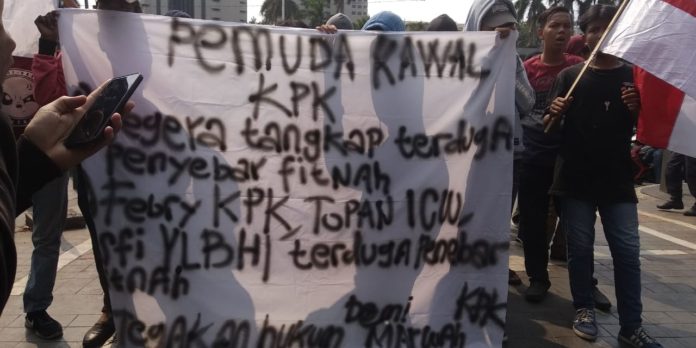 PEMUDA KAWAL
KPK
segera tangkap terduga
penyebar fitnah
Febry KPK, TOPAN ICW,
YLBHI terduga Penebar
Demi KPK
Tegakan hukum MARWAH